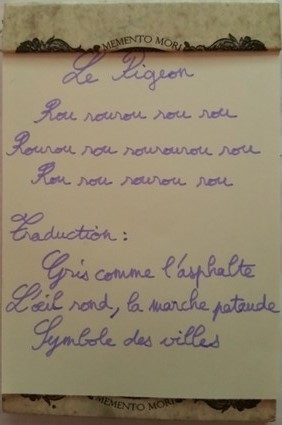 MEMENTO MORI
Le Pigeon
Rou rourou rou rou
Rourou rou rourourou rou
Rou rou rourou rou
Traduction :
Gris comme l'asphalte
L'œil rond, la marche pataude
Symbole des villes
MEMENTO MORI